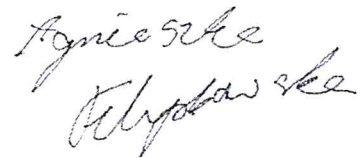 Agnieszka
Filipkowska